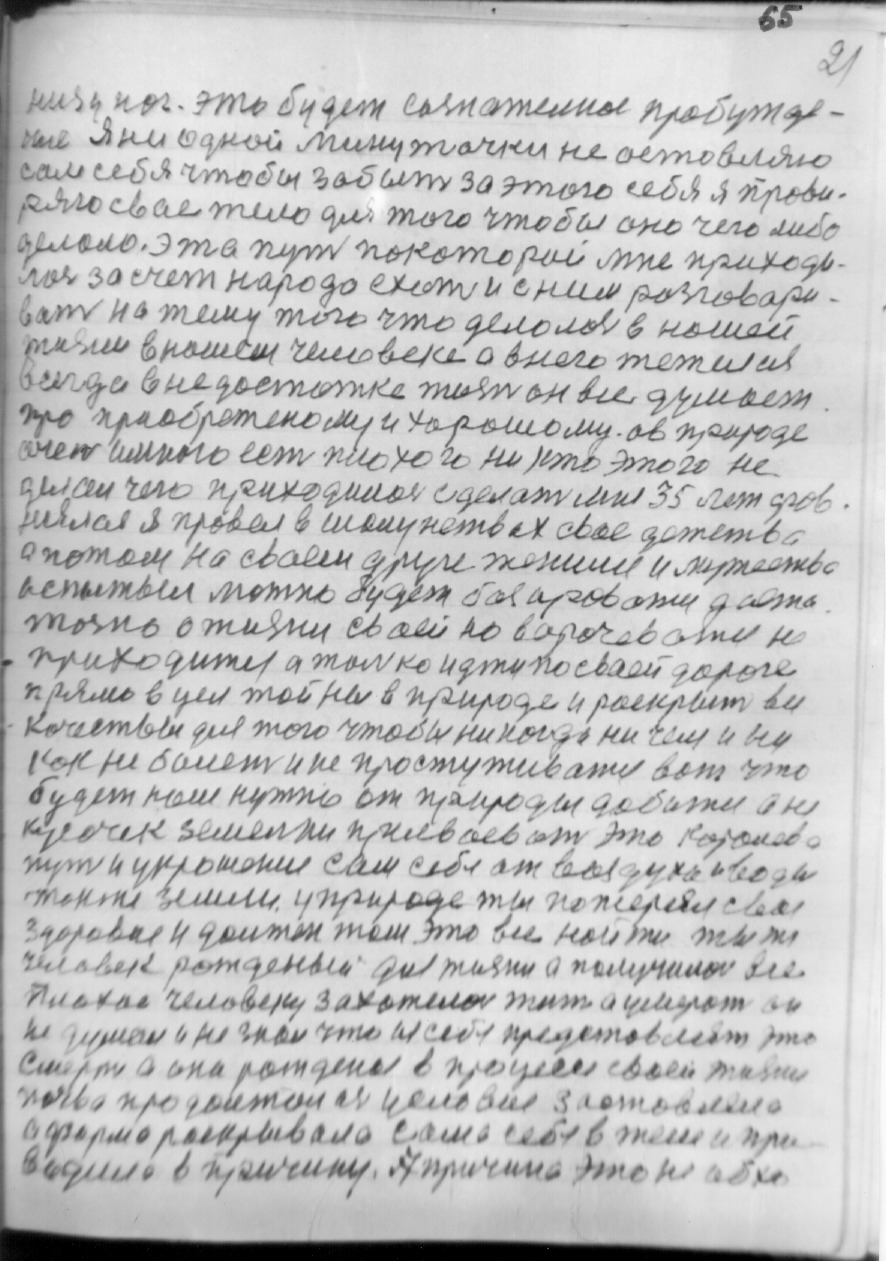 65
21
низу ног. это будет сознателное пробужде-
ние Я ни одной минуточки не остовляю
сам себя чтобы забыт за этого себя я прови-
ряю свае тело для того чтобы оно чего либо
делоло. Эта пут по которой мне приходи-
лоя за счет народа ехат и с ним розговари-
ват на тему того что делолоя в нашей
жизни в нашем человеке а в него тежилоя
всегда в недостатке жизн он все думает
про приобретеному и хорошому. ав природе
очен имного ест плохого никто этого не
делал чего приходилоя сделат мне 35 лет
я провел в свое детства
а потом на своем друге женшине и мужества
испытыл можно будет
о жизни своей но не
приходитие а толко идти по своей дороге
прямо в цел тойны в природе и раскрыт ви
качествы для того чтобы никогда ни чем и ни
как не болет и не простуживатие вот что
будет нам нужно от природы добыти а не
кусочек землепки приеваеват это
пут и украшение сам себе от воздуха и воды
также земли. у природе ты потерял свое
здоровие и должен там это все найти ты ж
человек рожденый для жизни а получилоя все
Плохое человеку захотелоя жит а умерат он
не думал и не знал что из себе предстовляет это
смерти а она рождена в процесе своей жизни
почва условие заготовлено
а форма раскрывала сама себе в теле и при-
водила в причину. А причина это не обхо